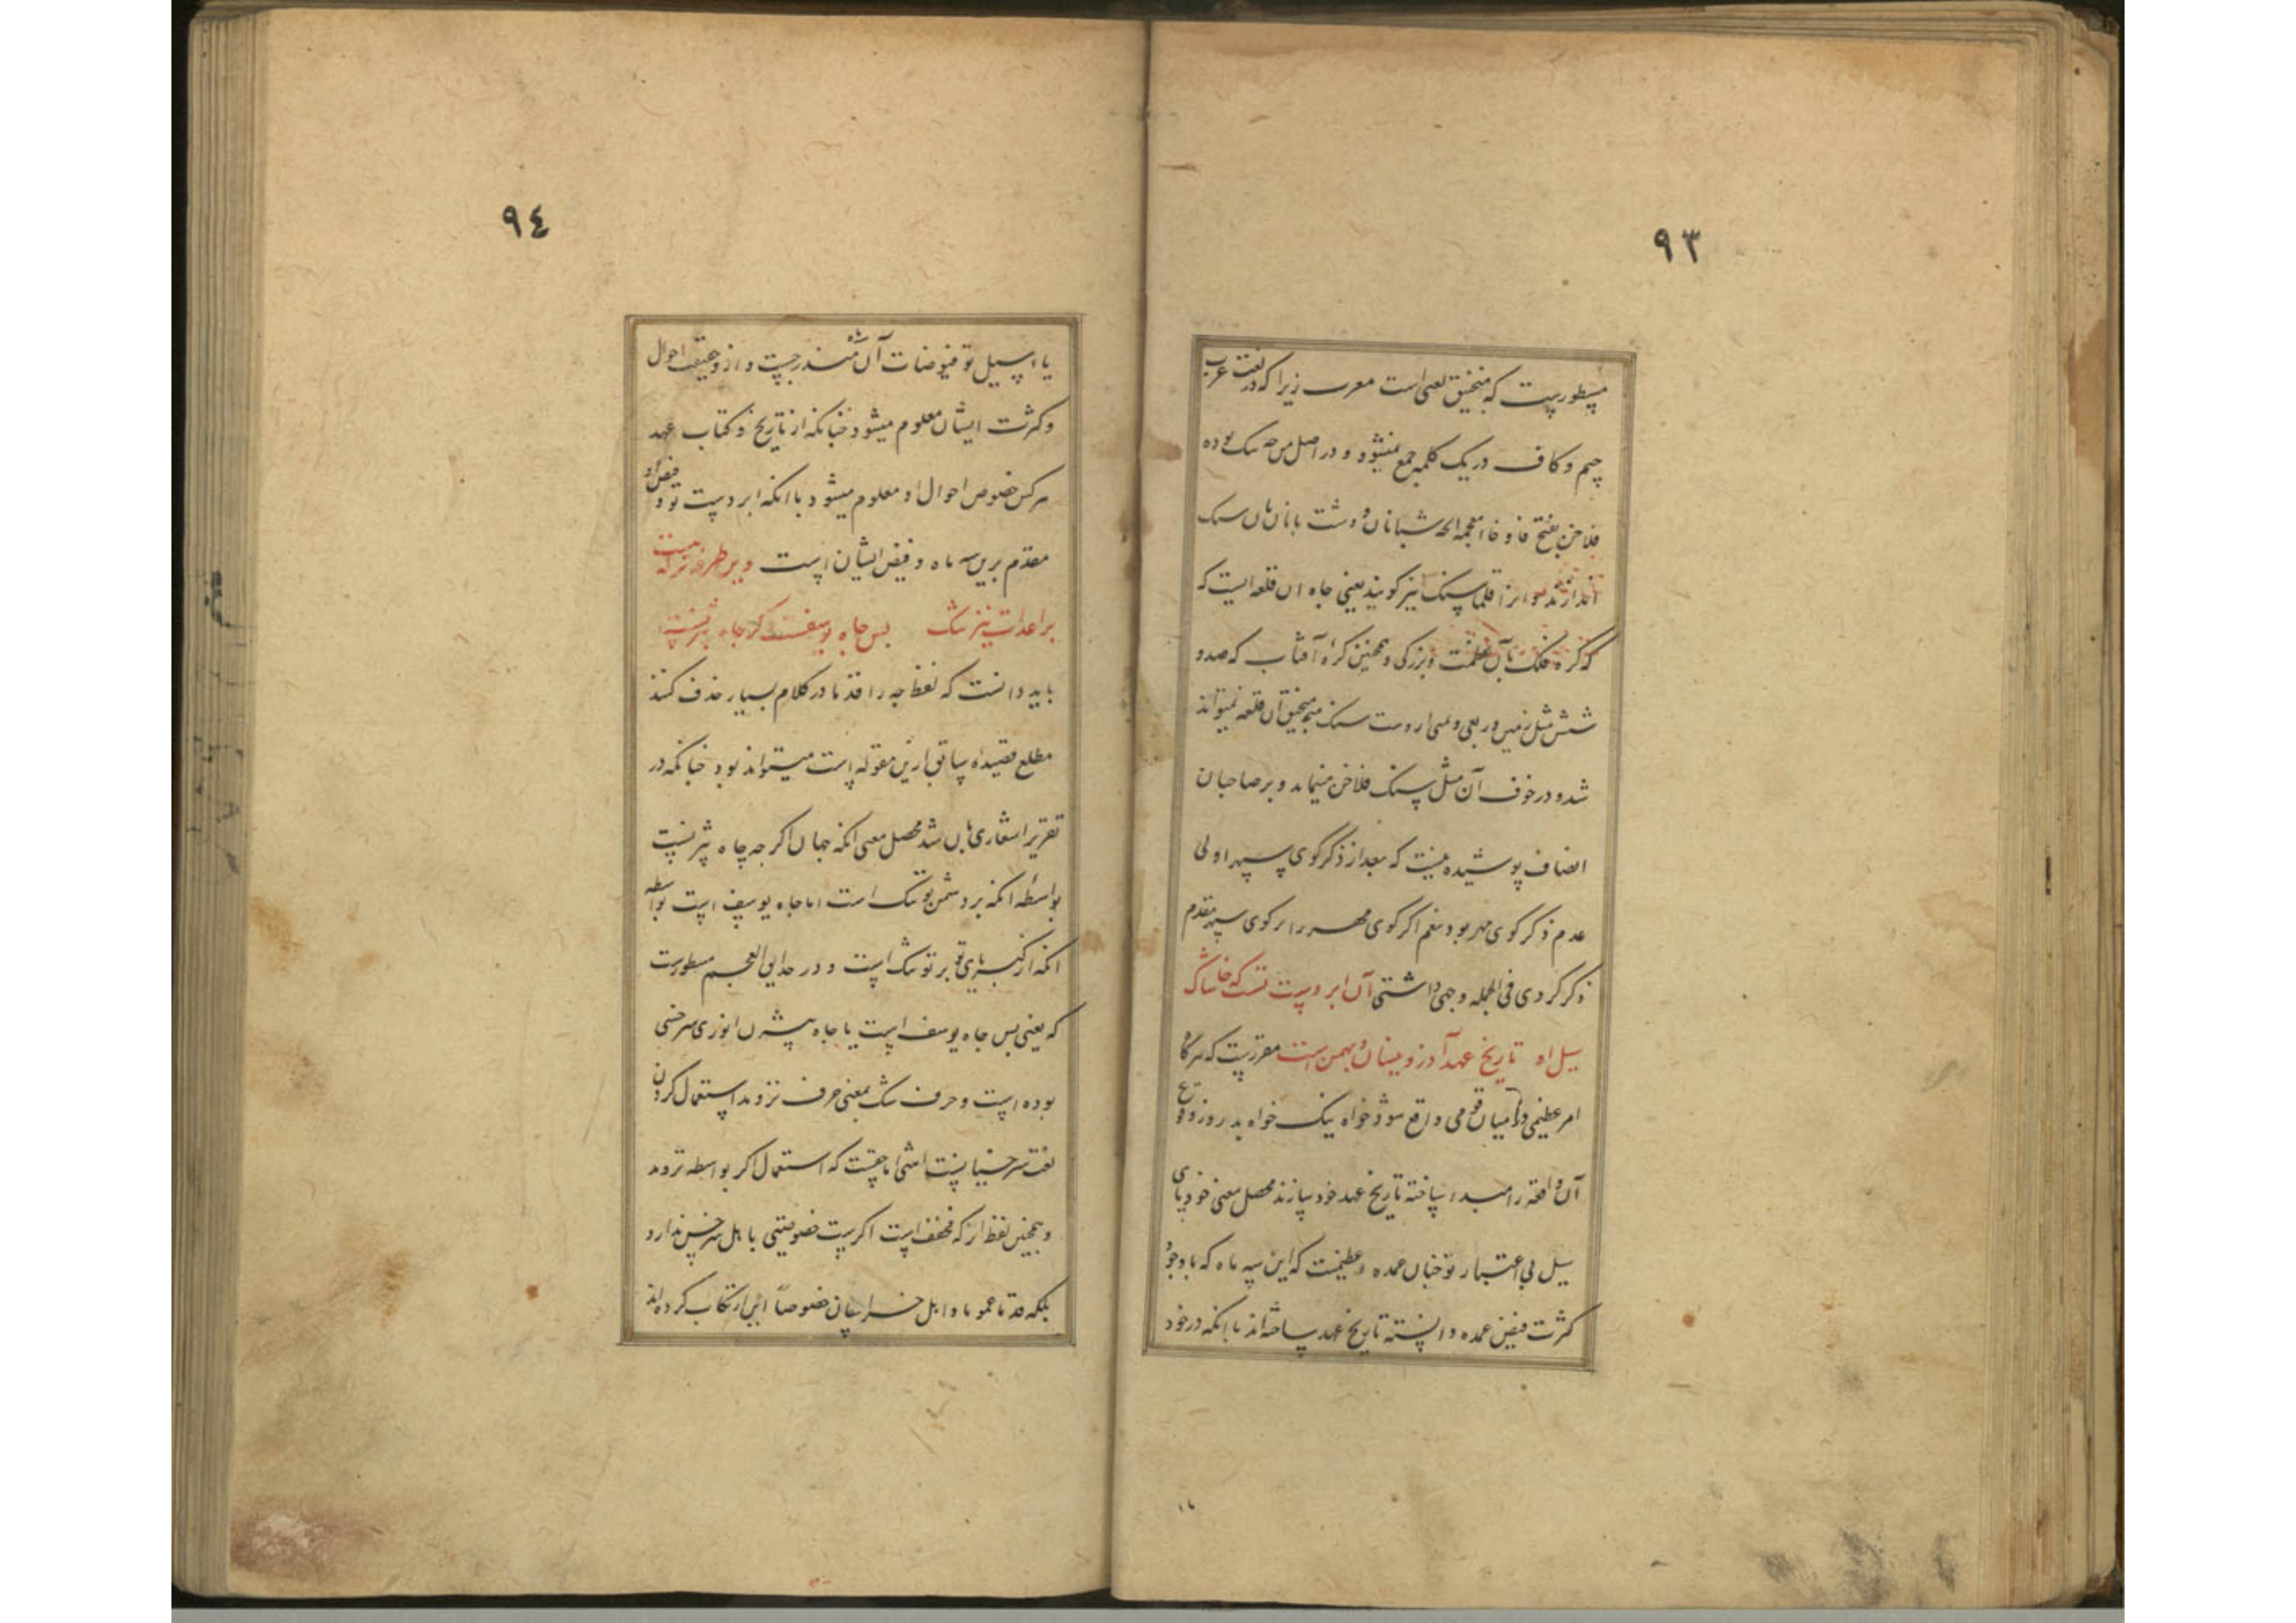 ٩٣
مسطورست که منجنیق لغتی است معرب زیرا که در لغت عرب
جیم و کاف در یک کلمه جمع نمیشود و در اصل من چه نیک بوده
فلاخن بفتح فا و خاء معجمه شبانان و دشت بانان بآن سنک
اندازند و انرا قلماسنک نیز کویند یعنی جاه ان قلعه ایست که
که کره فلک بآن عظمت و بزرکی و همچنین کرهٔ آفتاب که صد و
شش مثل زمین و ربعی و ثمنی ازوست سنک منجنیق آن قلعه نمیتواند
شد و در خوف آن مثل سنک فلاخن مینماید و بر صاحبان
انصاف پوشیده نیست که بعد از ذکر کوی سپهر اولی
عدم ذکر کوی مهر بود نعم اکر کوی مهر را بر کوی سپهر مقدم
ذکر کردی فی الجمله وجهی داشتی آن ابر دست تست که خاشاک
سیل او تاریخ عهد آذر و نیسان و بهمن است مقررست که هرکاه
امر عظیمی در میان قومی واقع شود خواه نیک خواه بد روز وقوع
آن واقعه را مبدا ساخته تاریخ عهد خود سازند محصل معنی خود
سیل بی اعتبار تو چنان عمده و عظیمست که این سه ماه که با وجود
کثرت فیض عمده دانسته تاریخ عهد ساخته‌اند با انکه در خود
با
٩٤
یا سیل تو فیوضات آن سه ماه مندرجست و ازو حقیقت احوال
و کثرت ایشان معلوم میشود چنانکه از تاریخ و کتاب عهد
هر کس خصوص احوال او معلوم میشود با انکه ابر دست تو و فیض او
مقدم برین سه ماه و فیض ایشان است
بر اعدات نیز تنک بس جاه یوسفست کر جاه بیژنست
باید دانست که لفظ چه را قدما در کلام بسیار حذف کنند
مطلع قصیدهٔ سابق ازین مقوله است میتواند بود چنانکه در
تقریر اشعاری بآن شد محصل معنی انکه جهان اکر جه جاه بیژنست
بواسطه انکه بر دشمن تو تنک است اما جاه یوسف است بواسطه
انکه از کبریای تو بر تو تنک است و در حدایق العجم مسطورست
که یعنی بس جاه یوسف است یا جاه بیژن انوری سرخسی
بوده است و حرف بمعنی حرف تردید استعمال کردن
لغت سرخسیانست اما حقیقت که استعمال اکر بواسطه تردید
و همچنین لفظ ار که مخفف است خصوصیتی با اهل سرخس ندارد
بلکه قدما عموما و اهل خراسان خصوصاً این ارتکاب کرده‌اند